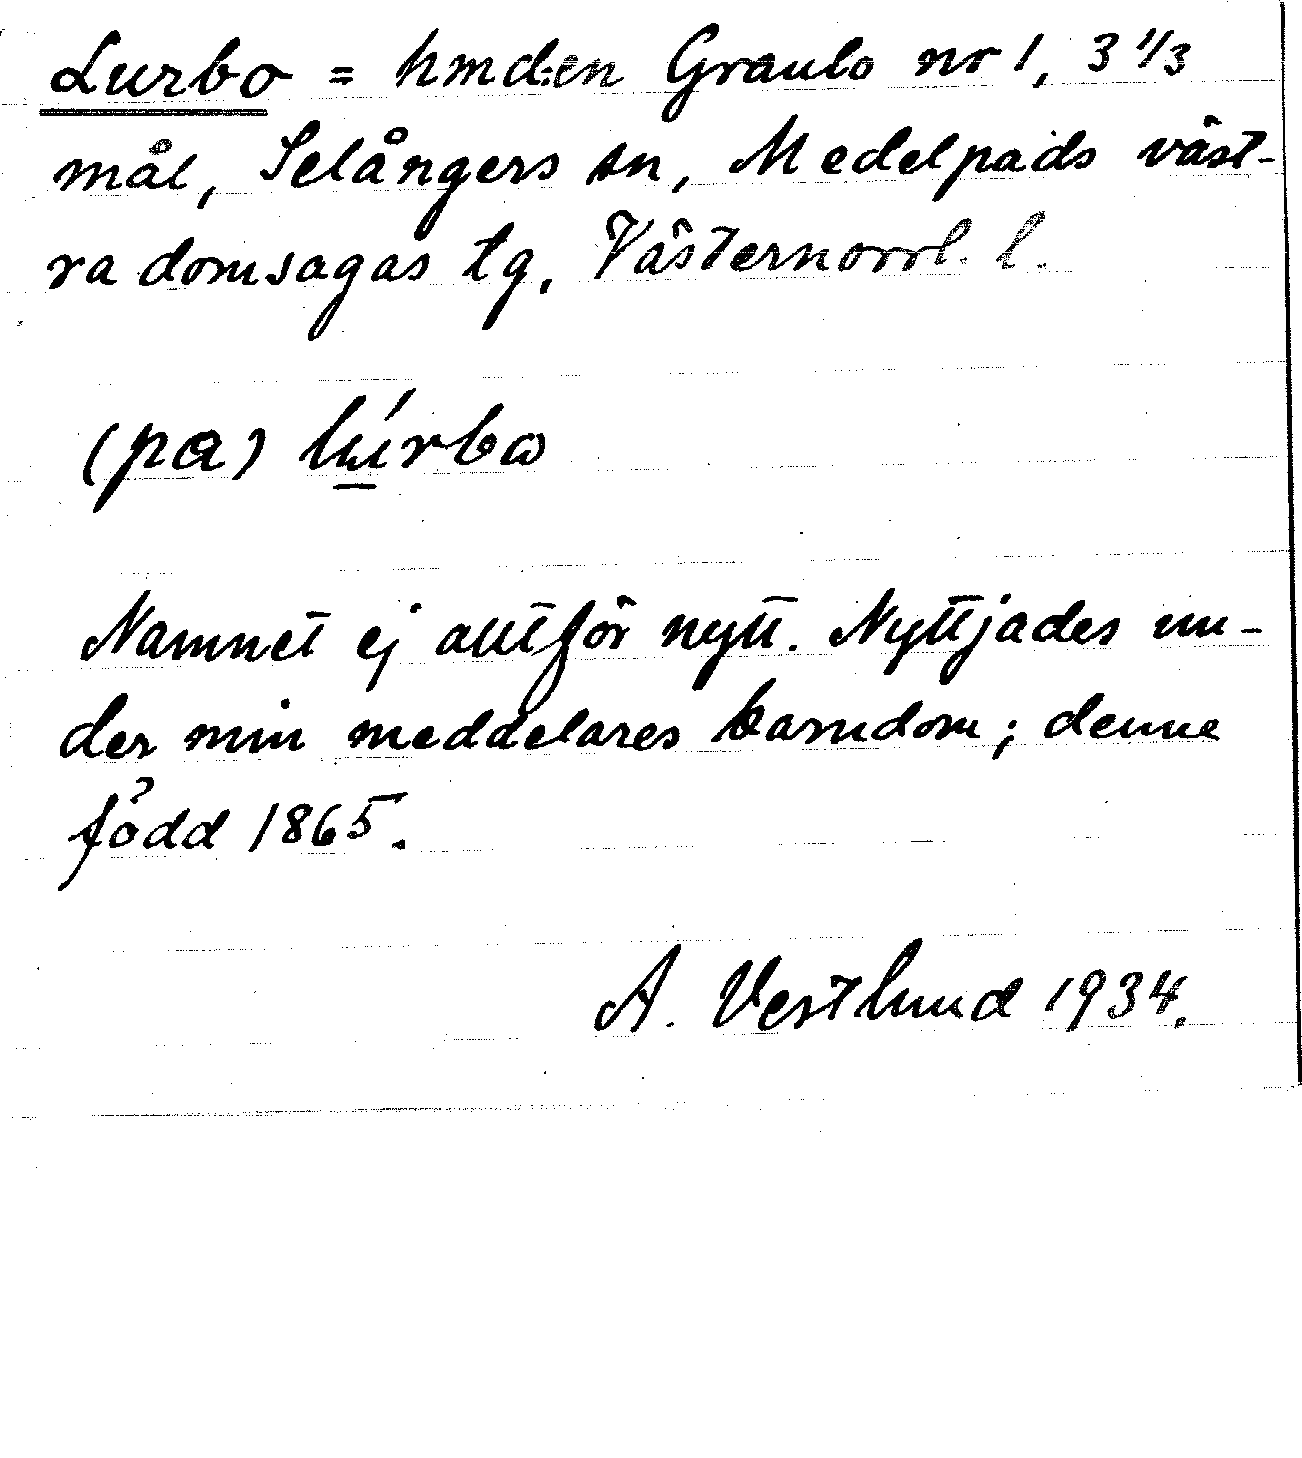 Lurbo = hmd:en Granlo nr 1, 3 1/3
mål, Selångers sn, Medelpads väst-
ra domsagas tg, Västernorrl. l.
(pa) lúrbω
Namnet ej alltför nytt. Nyttjades un-
der min meddelares barndom; denne
född 1865.
A. Vestlund 1934.